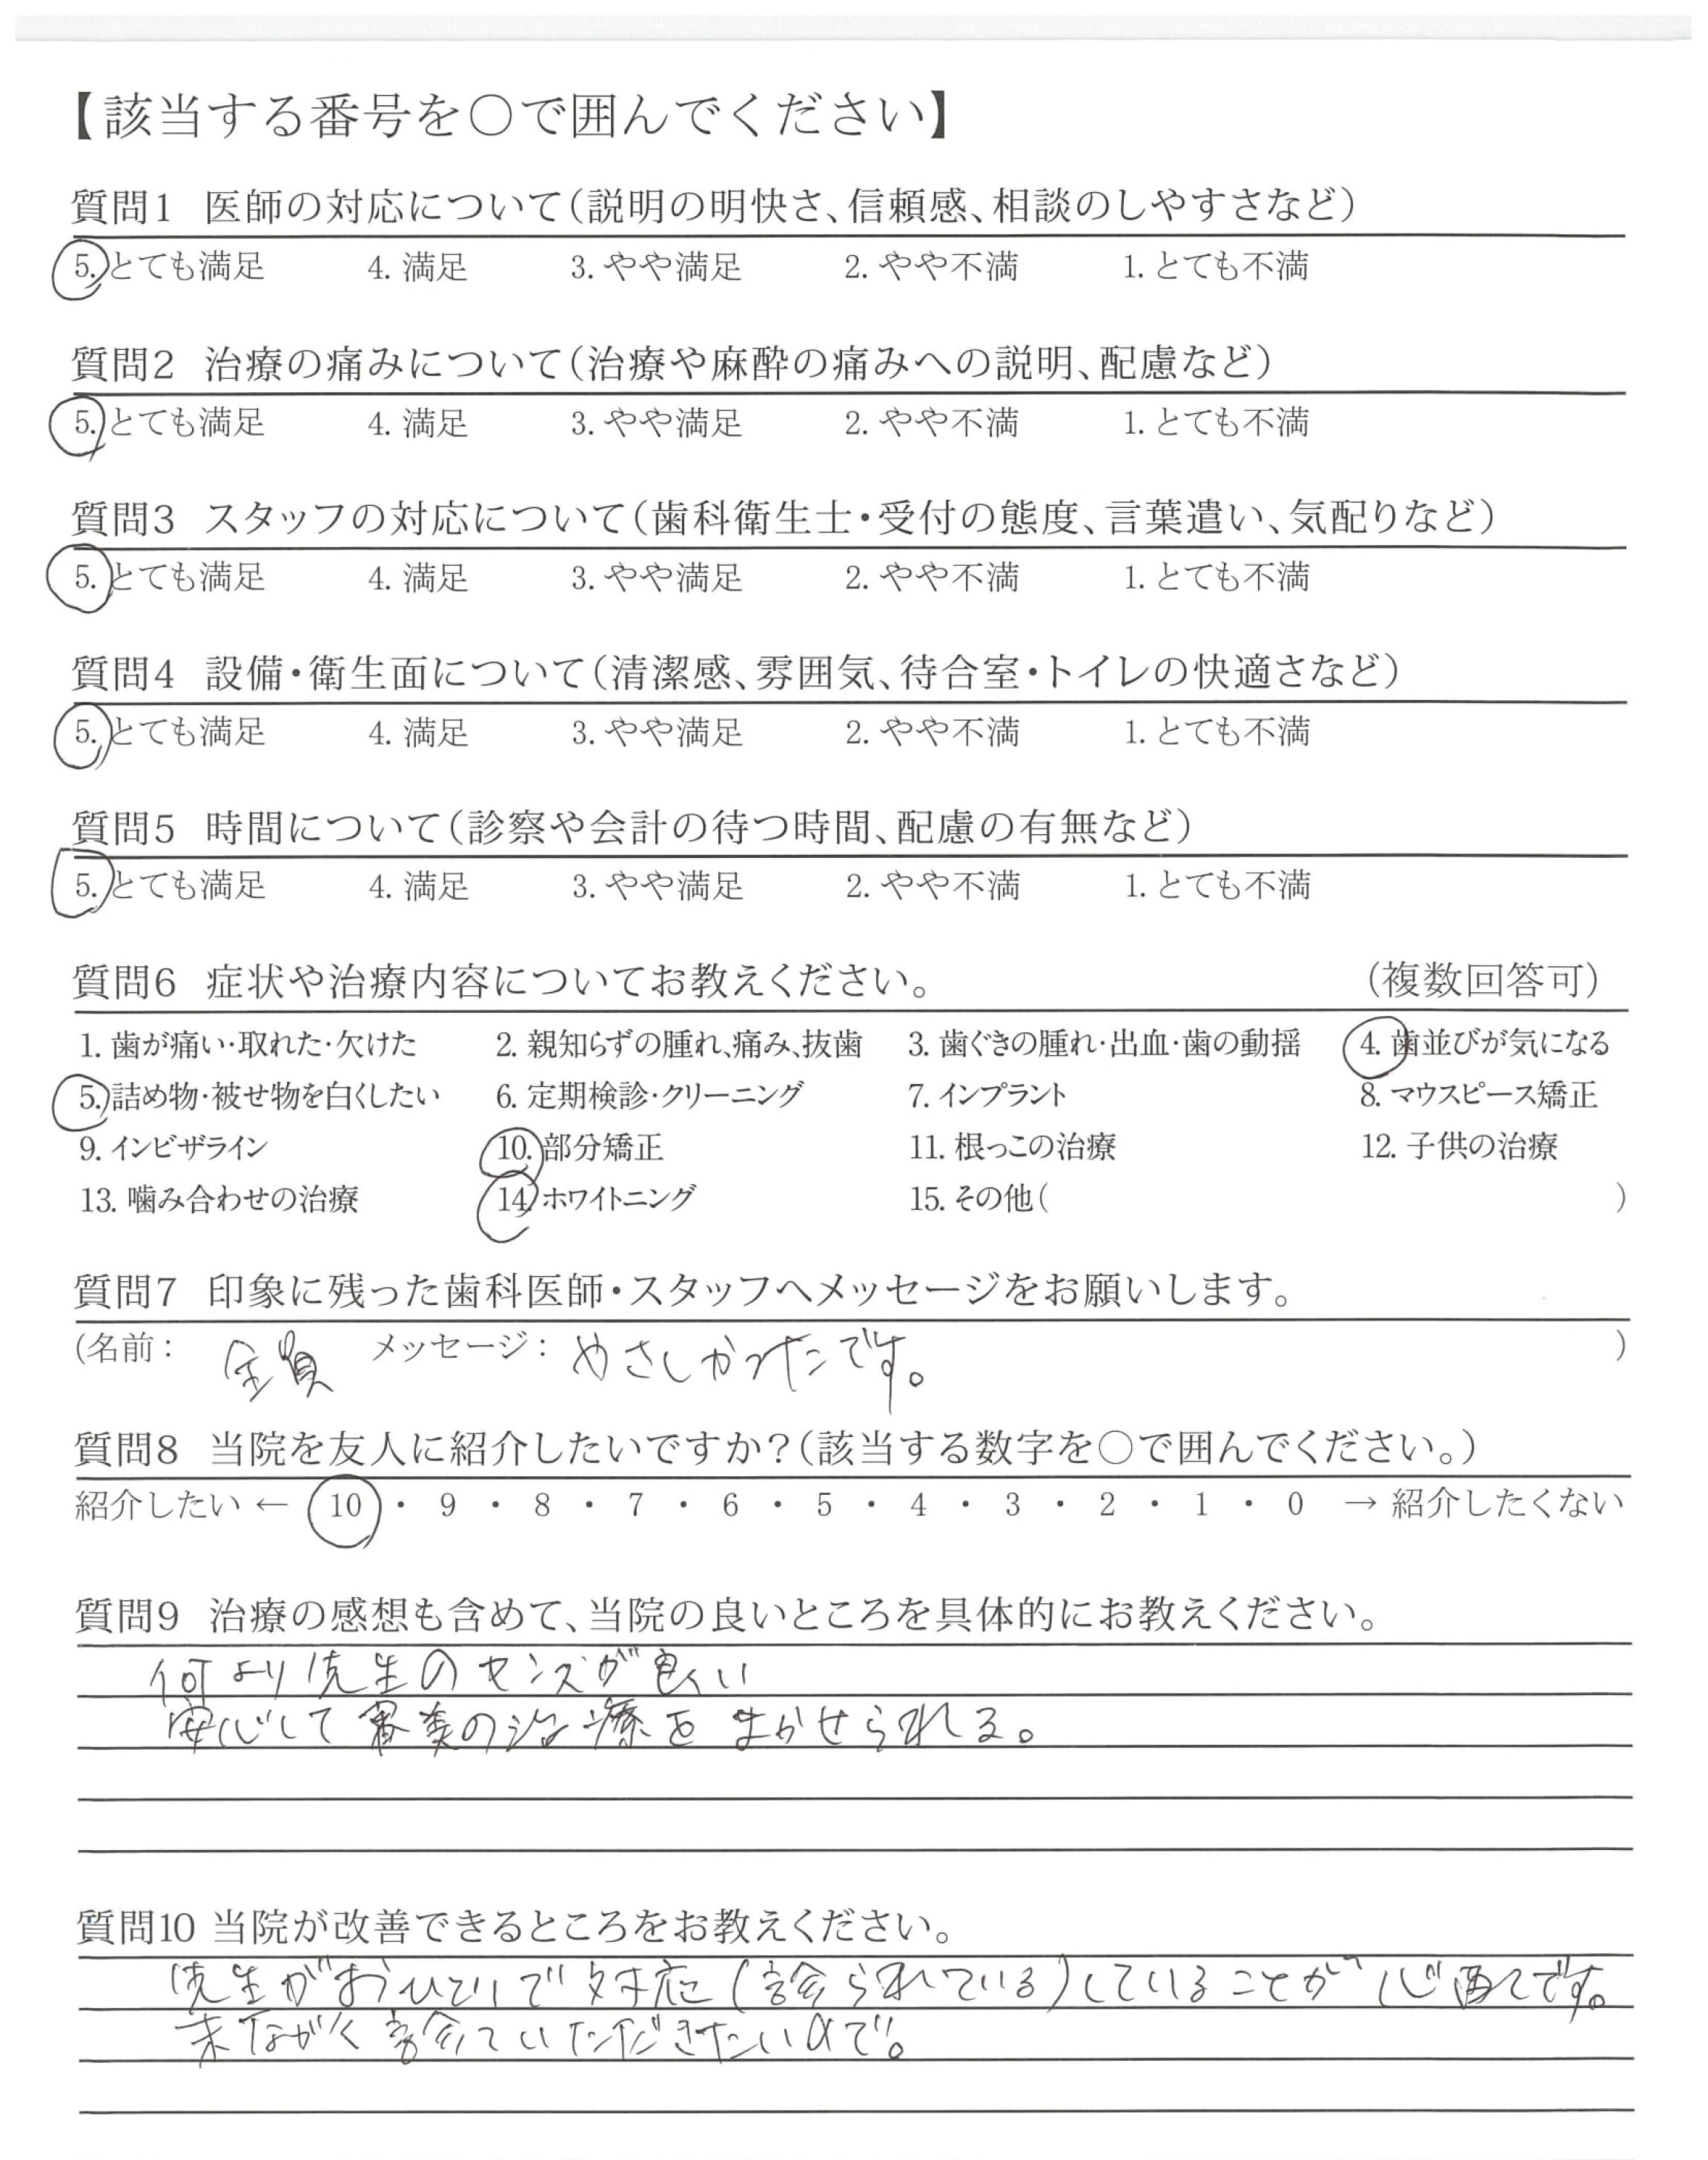 【該当する番号を〇で囲んでください】
質問1 医師の対応について(説明の明快さ、信頼感、相談のしやすさなど)
5. とても満足 4. 満足 3. やや満足 2. やや不満 1. とても不満
質問2 治療の痛みについて(治療や麻酔の痛みへの説明、配慮など)
5. とても満足 4. 満足 3. やや満足 2. やや不満 1. とても不満
質問3 スタッフの対応について(歯科衛生士・受付の態度、言葉遣い、気配りなど)
5. とても満足 4. 満足 3. やや満足 2. やや不満 1. とても不満
質問4 設備・衛生面について(清潔感、雰囲気、待合室・トイレの快適さなど)
5. とても満足 4. 満足 3. やや満足 2. やや不満 1. とても不満
質問5 時間について(診察や会計の待つ時間、配慮の有無など)
5. とても満足 4. 満足 3. やや満足 2. やや不満 1. とても不満
質問6 症状や治療内容についてお教えください。 (複数回答可)
1. 歯が痛い・取れた・欠けた 2. 親知らずの腫れ、痛み、抜歯 3. 歯ぐきの腫れ・出血・歯の動揺 4. 歯並びが気になる
5. 詰め物・被せ物を白くしたい 6. 定期検診・クリーニング 7. インプラント 8. マウスピース矯正
9. インビザライン 10. 部分矯正 11. 根っこの治療 12. 子供の治療
13. 噛み合わせの治療 14. ホワイトニング 15. その他( )
質問7 印象に残った歯科医師・スタッフへメッセージをお願いします。
(名前: 全員 メッセージ: やさしかったです。 )
質問8 当院を友人に紹介したいですか?(該当する数字を〇で囲んでください。)
紹介したい ← 10 ・ 9 ・ 8 ・ 7 ・ 6 ・ 5 ・ 4 ・ 3 ・ 2 ・ 1 ・ 0 → 紹介したくない
質問9 治療の感想も含めて、当院の良いところを具体的にお教えください。
何より先生のセンスが良い
安心して審美の治療をまかせられる。
質問10 当院が改善できるところをお教えください。
先生がおひとりで対応(診られている)していることが心配です。
末ながく診ていただきたいので。